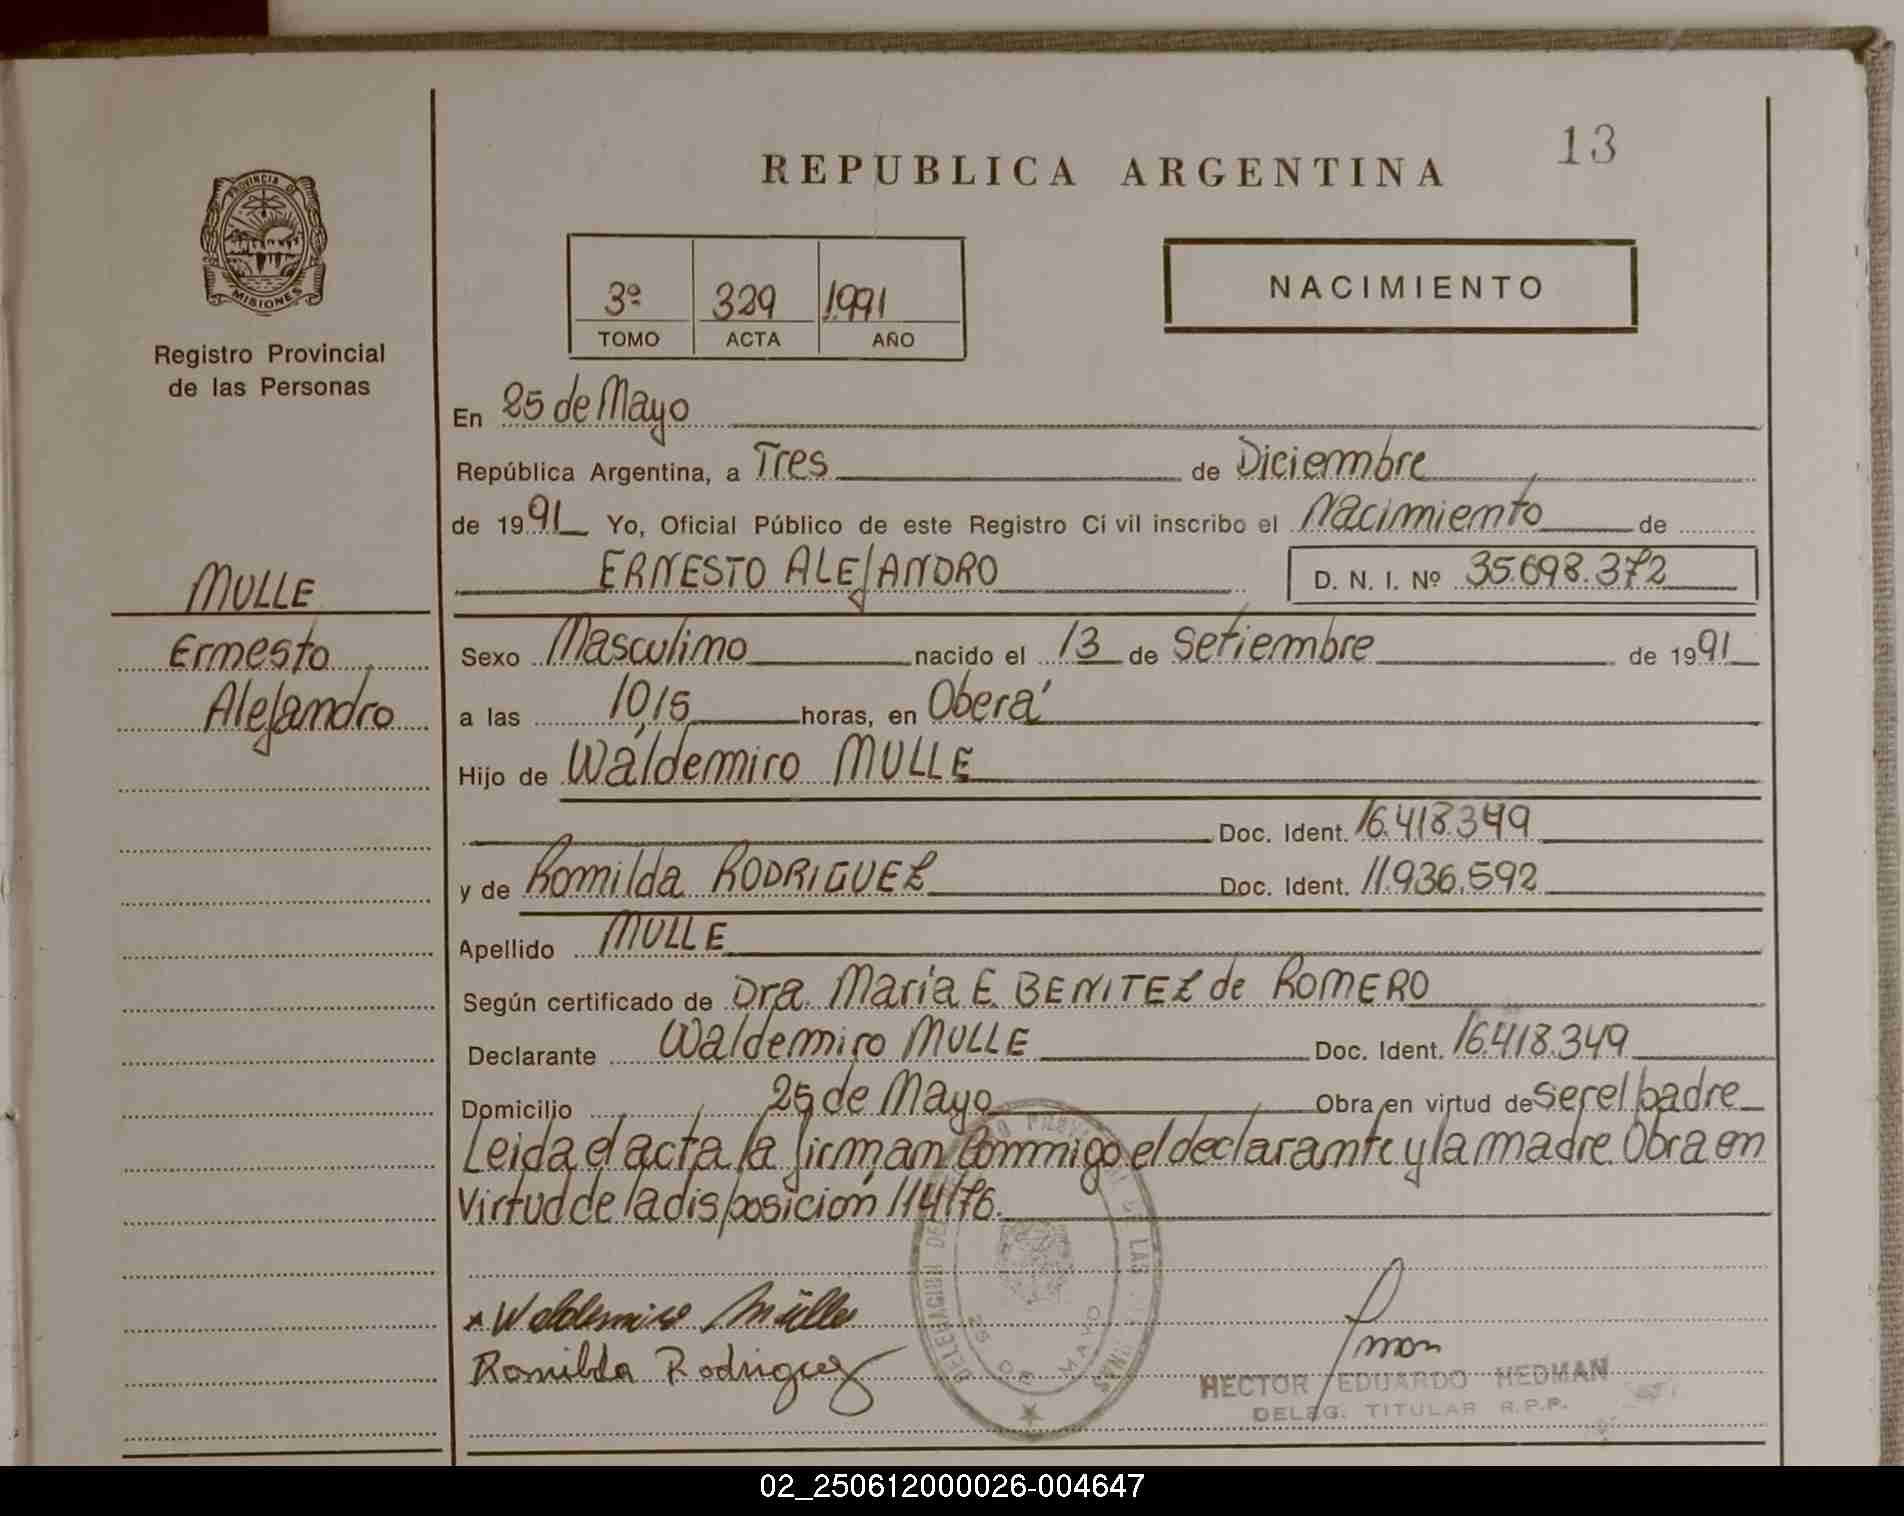 13
REPUBLICA ARGENTINA
PROVINCIA DE
MISIONES
Registro Provincial
de las Personas
3º 329 1991
TOMO ACTA AÑO
NACIMIENTO
En 25 de Mayo
República Argentina, a Tres de Diciembre
de 1991 Yo, Oficial Público de este Registro Ci vil inscribo el Nacimiento de
ERNESTO ALEJANDRO D. N. I. Nº 35.698.372
MULLE
Ernesto
Alejandro
Sexo Masculino nacido el 13 de Setiembre de 1991
a las 10,15 horas, en Oberá
Hijo de Waldemiro MULLE
Doc. Ident. 16.418.349
y de Romilda RODRIGUEZ Doc. Ident. 11.936.592
Apellido MULLE
Según certificado de Dra. María E. BENITEZ de ROMERO
Declarante Waldemiro MULLE Doc. Ident. 16.418.349
Domicilio 25 de Mayo Obra en virtud de ser el padre
Leida el acta la firman conmigo el declarante y la madre. Obra en
Virtud de la disposición 114/76.
Waldemiro Müller
Romilda Rodriguez
DELEGACION DE
25 DE MAYO
HECTOR EDUARDO HEDMAN
DELEG. TITULAR R.P.P.
02_250612000026-004647